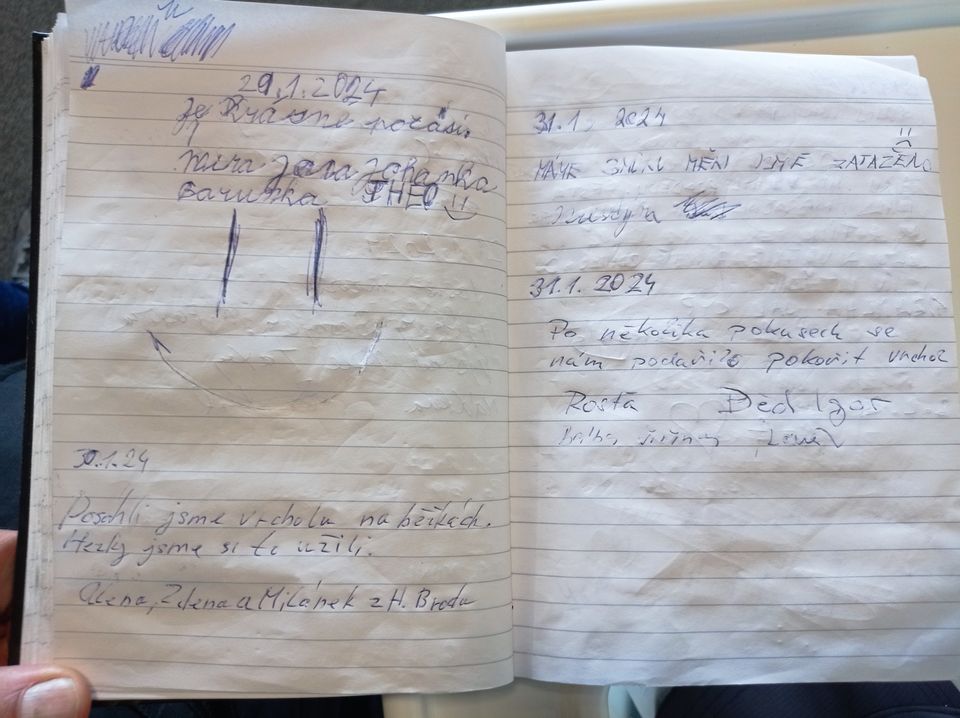 29.1.2024
Je Krásné počási.
Jana Johanka
Baruška THEO
30.1.24
Dosáhli jsme vrcholu na běžkách.
Hezky jsme si to užili.
Alena, Zdena a Milánek z H. Brodu
31.1. 2024
MÁME SMŮLU MĚLI JSME ZATAŽENO
31.1.2024
Po několika pokusech se
nám podařilo pokořit vrchol
Rosťa Děd Igor